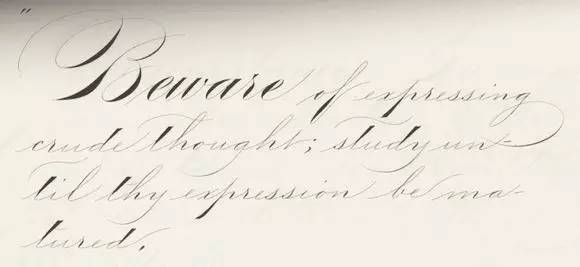 "Beware of expressing
crude thought; study un-
til thy expression be ma-
tured.